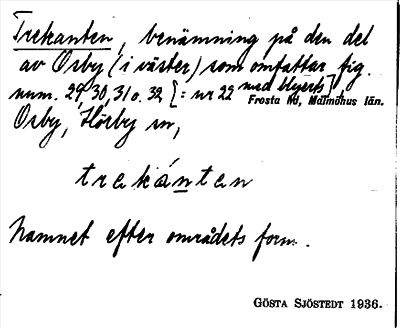 Trekanten, benämning på den del
av Osby (i väster) som omfattar fig.
num. 29, 30, 31 o. 32 [: nr 22 med blyerts],
Frosta hd, Malmöhus län.
Osby, Hörby sn,
trekánten
Namnet efter områdets form.
GÖSTA SJÖSTEDT 1936.